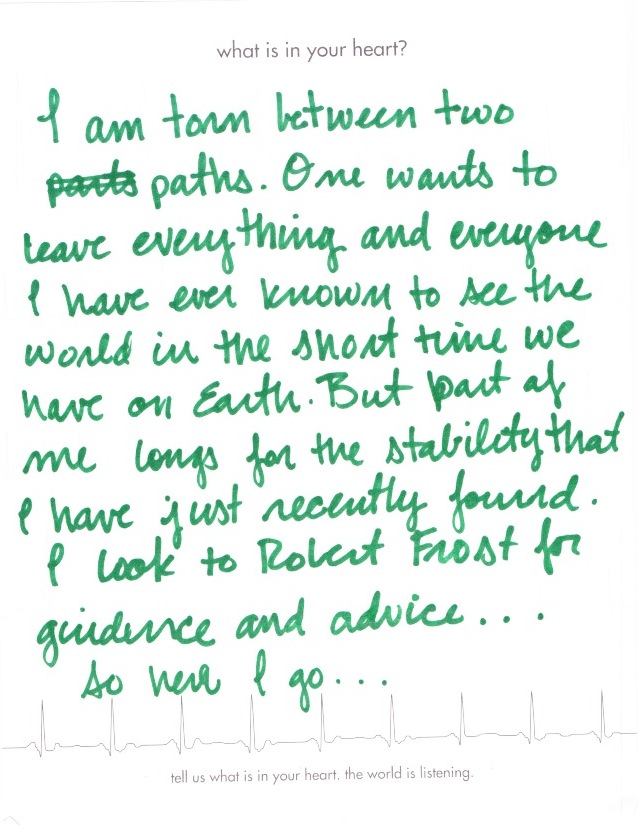 what is in your heart?
I am torn between two
parts paths. One wants to
leave everything and everyone
I have ever known to see the
world in the short time we
have on Earth. But part of
me longs for the stability that
I have just recently found.
I look to Robert Frost for
guidence and advice....
so here I go...
tell us what is in your heart. the world is listening.